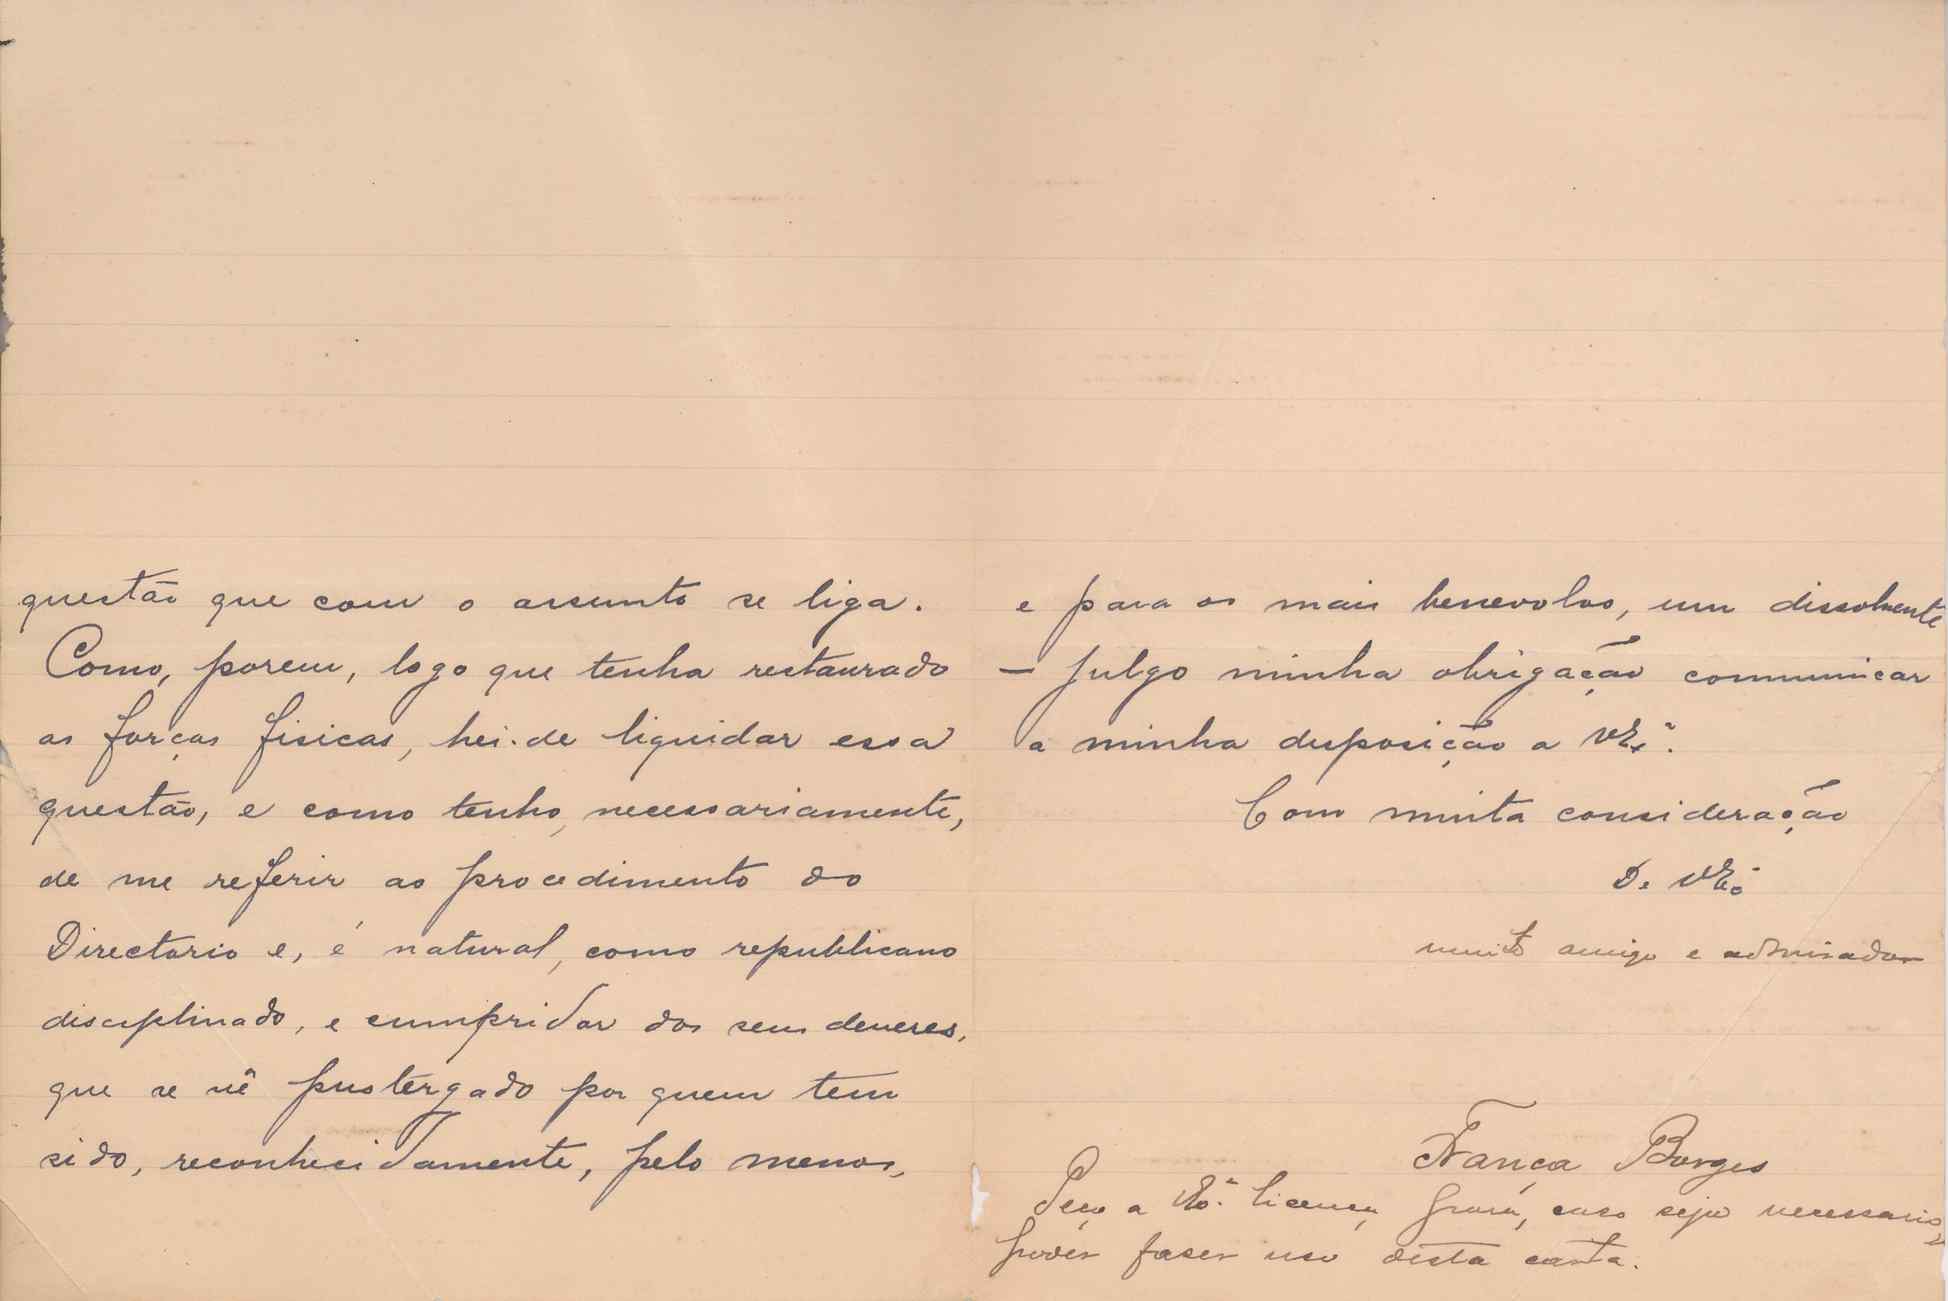 questão que com o assunto se liga.
Como, porem, logo que tenha restaurado
as forças fisicas, hei-de liquidar essa
questão, e como tenho, necessariamente,
de me referir ao procedimento do
Directorio e, é natural, como republicano
disciplinado, e cumpridor dos seus deveres,
que se vê postergado por quem tem
sido, reconhecidamente, pelo menos,
e para os mais benevolos, um dissolvente
— julgo minha obrigação communicar
a minha disposição a VEx.ª.
Com muita consideração
De VEx.ª
muito amigo e admirador
França Borges
Peço a VEx.ª licença para, caso seja necessario,
poder faser uso desta carta.